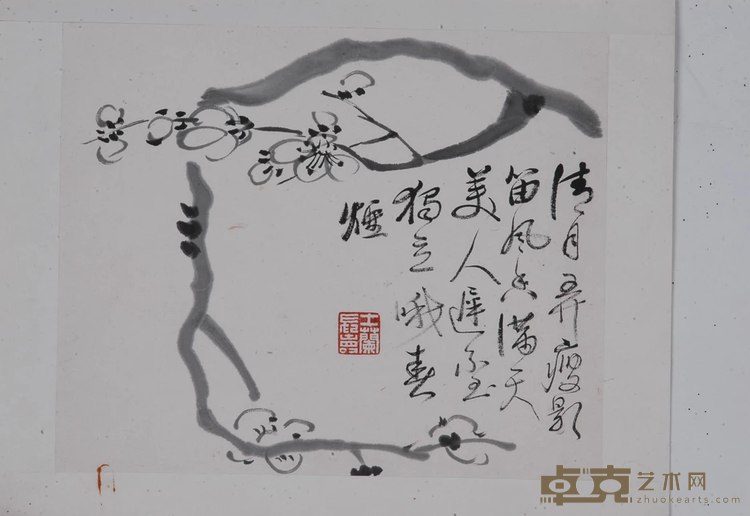 清月弄瘦影
笛风满天
美人遲不至
獨立哦春
煙
卓克艺术网
zhuokearts.com